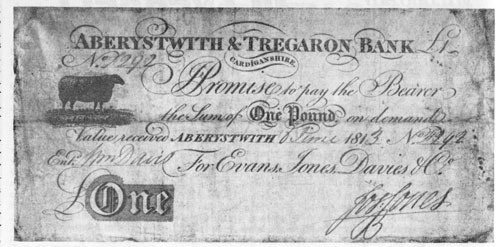 ABERYSTWITH & TREGARON BANK £1
CARDIGANSHIRE
No. 1292
I Promise to pay the Bearer
the Sum of One Pound on demand
Value received ABERYSTWITH 1813. No. 1292
Ent. Wm Davis For Evans, Jones, Davies & Co.
£One Jos. Jones